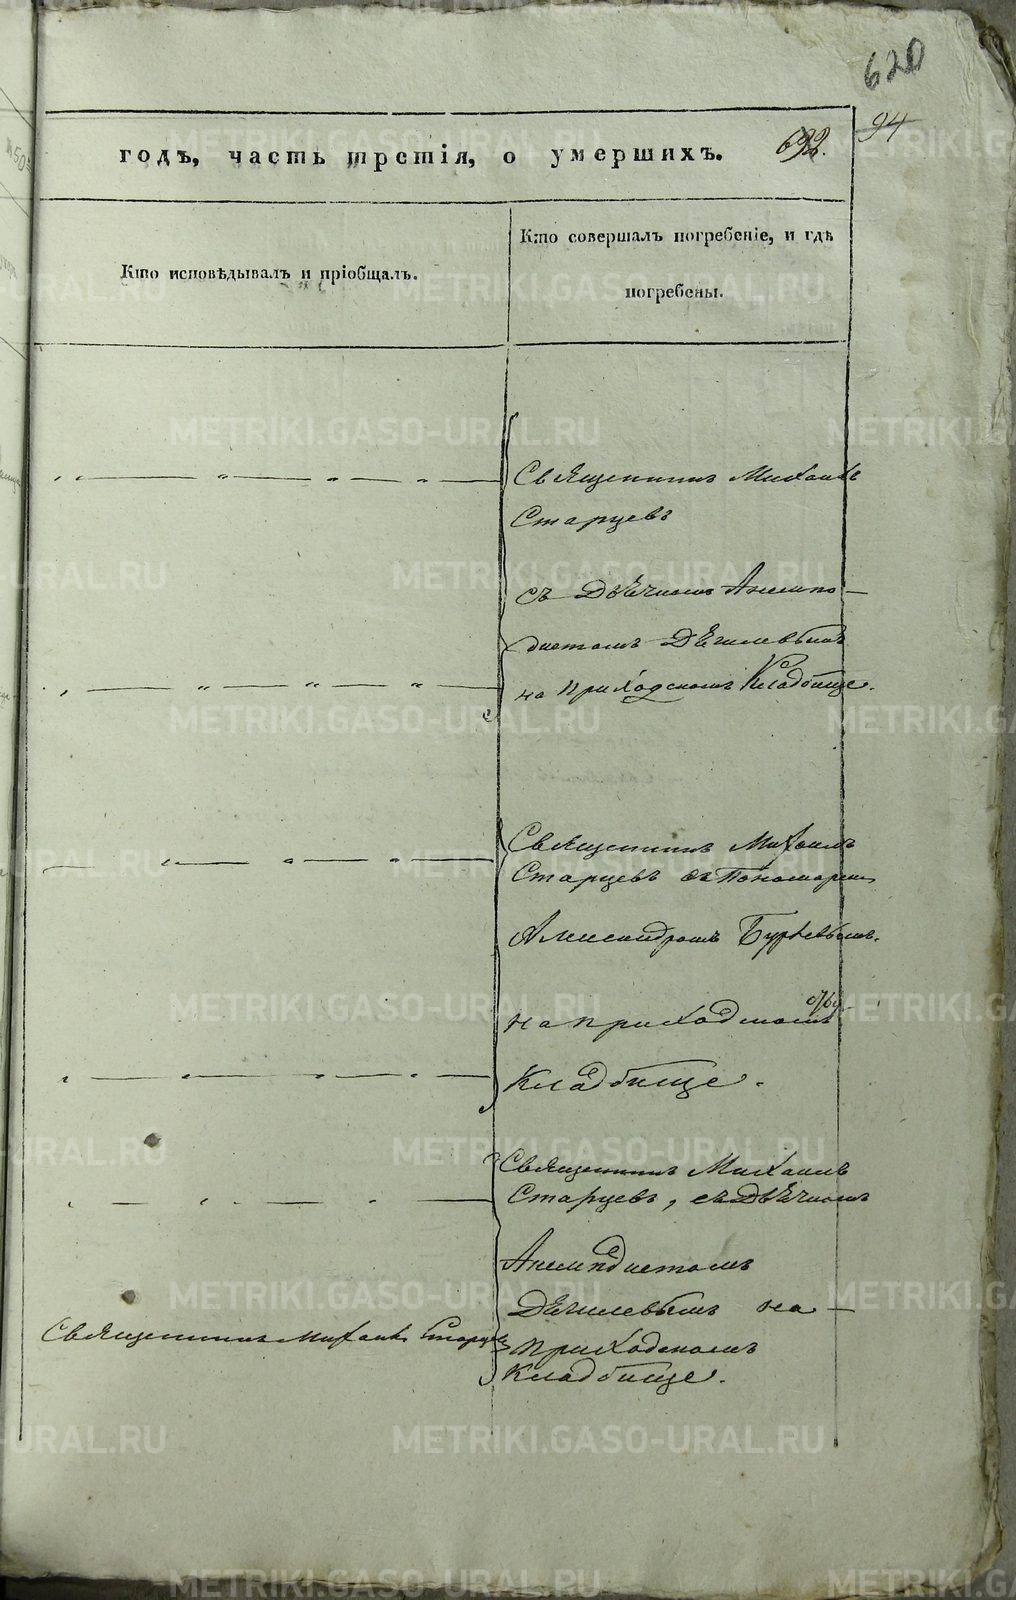 620
94
годъ, часть третія, о умершихъ.
Кто исповѣдывалъ и пріобщалъ.
Кто совершалъ погребеніе, и гдѣ
погребены.
Священникъ Михаилъ
Старцевъ
съ Дьячкомъ Анемпо-
дистомъ Дѣгилевымъ
на приходскомъ Кладбище.
Священникъ Михаилъ
Старцевъ съ Пономаремъ
Александромъ
на приходскомъ
Кладбище.
Священникъ Михаилъ
Старцевъ, съ Дьячкомъ
Анемподистомъ
Дѣгилевымъ на
приходскомъ
Кладбище.
Священникъ Михаилъ Старцевъ
METRIKI.GASO-URAL.RU